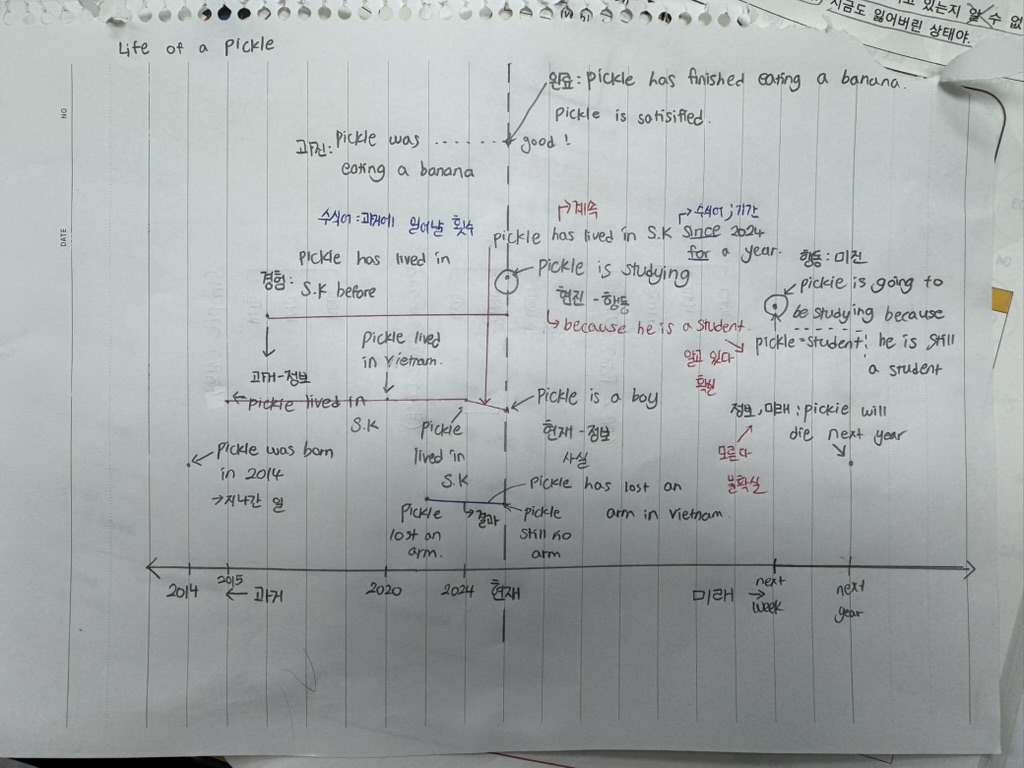 지금도 잃어버린 상태야.
Life of a pickle
NO
DATE
완료: pickle has finished eating a banana.
pickle is satisified.
과진: pickle was ........ good!
eating a banana
수식어: 과거에 일어난 횟수
계속
수식어; 기간
pickle has lived in S.K since 2024
for a year.
pickle has lived in
경험: S.K before
pickle is studying
현진 - 행동
because he is a student.
알고 있다
확실
행동: 미진
pickle is going to
be studying because
pickle=student: he is still
a student
pickle lived
in Vietnam.
과거-정보
pickle lived in
S.K
pickle
lived in
S.K
Pickle is a boy
현재 - 정보
사실
정보, 미래: pickle will
die next year
모른다
불확실
pickle was born
in 2014
→지나간 일
pickle has lost an
arm in Vietnam.
결과
pickle
lost an
arm.
pickle
still no
arm
2014
2015
← 과거
2020
2024
현재
미래 →
next
week
next
year